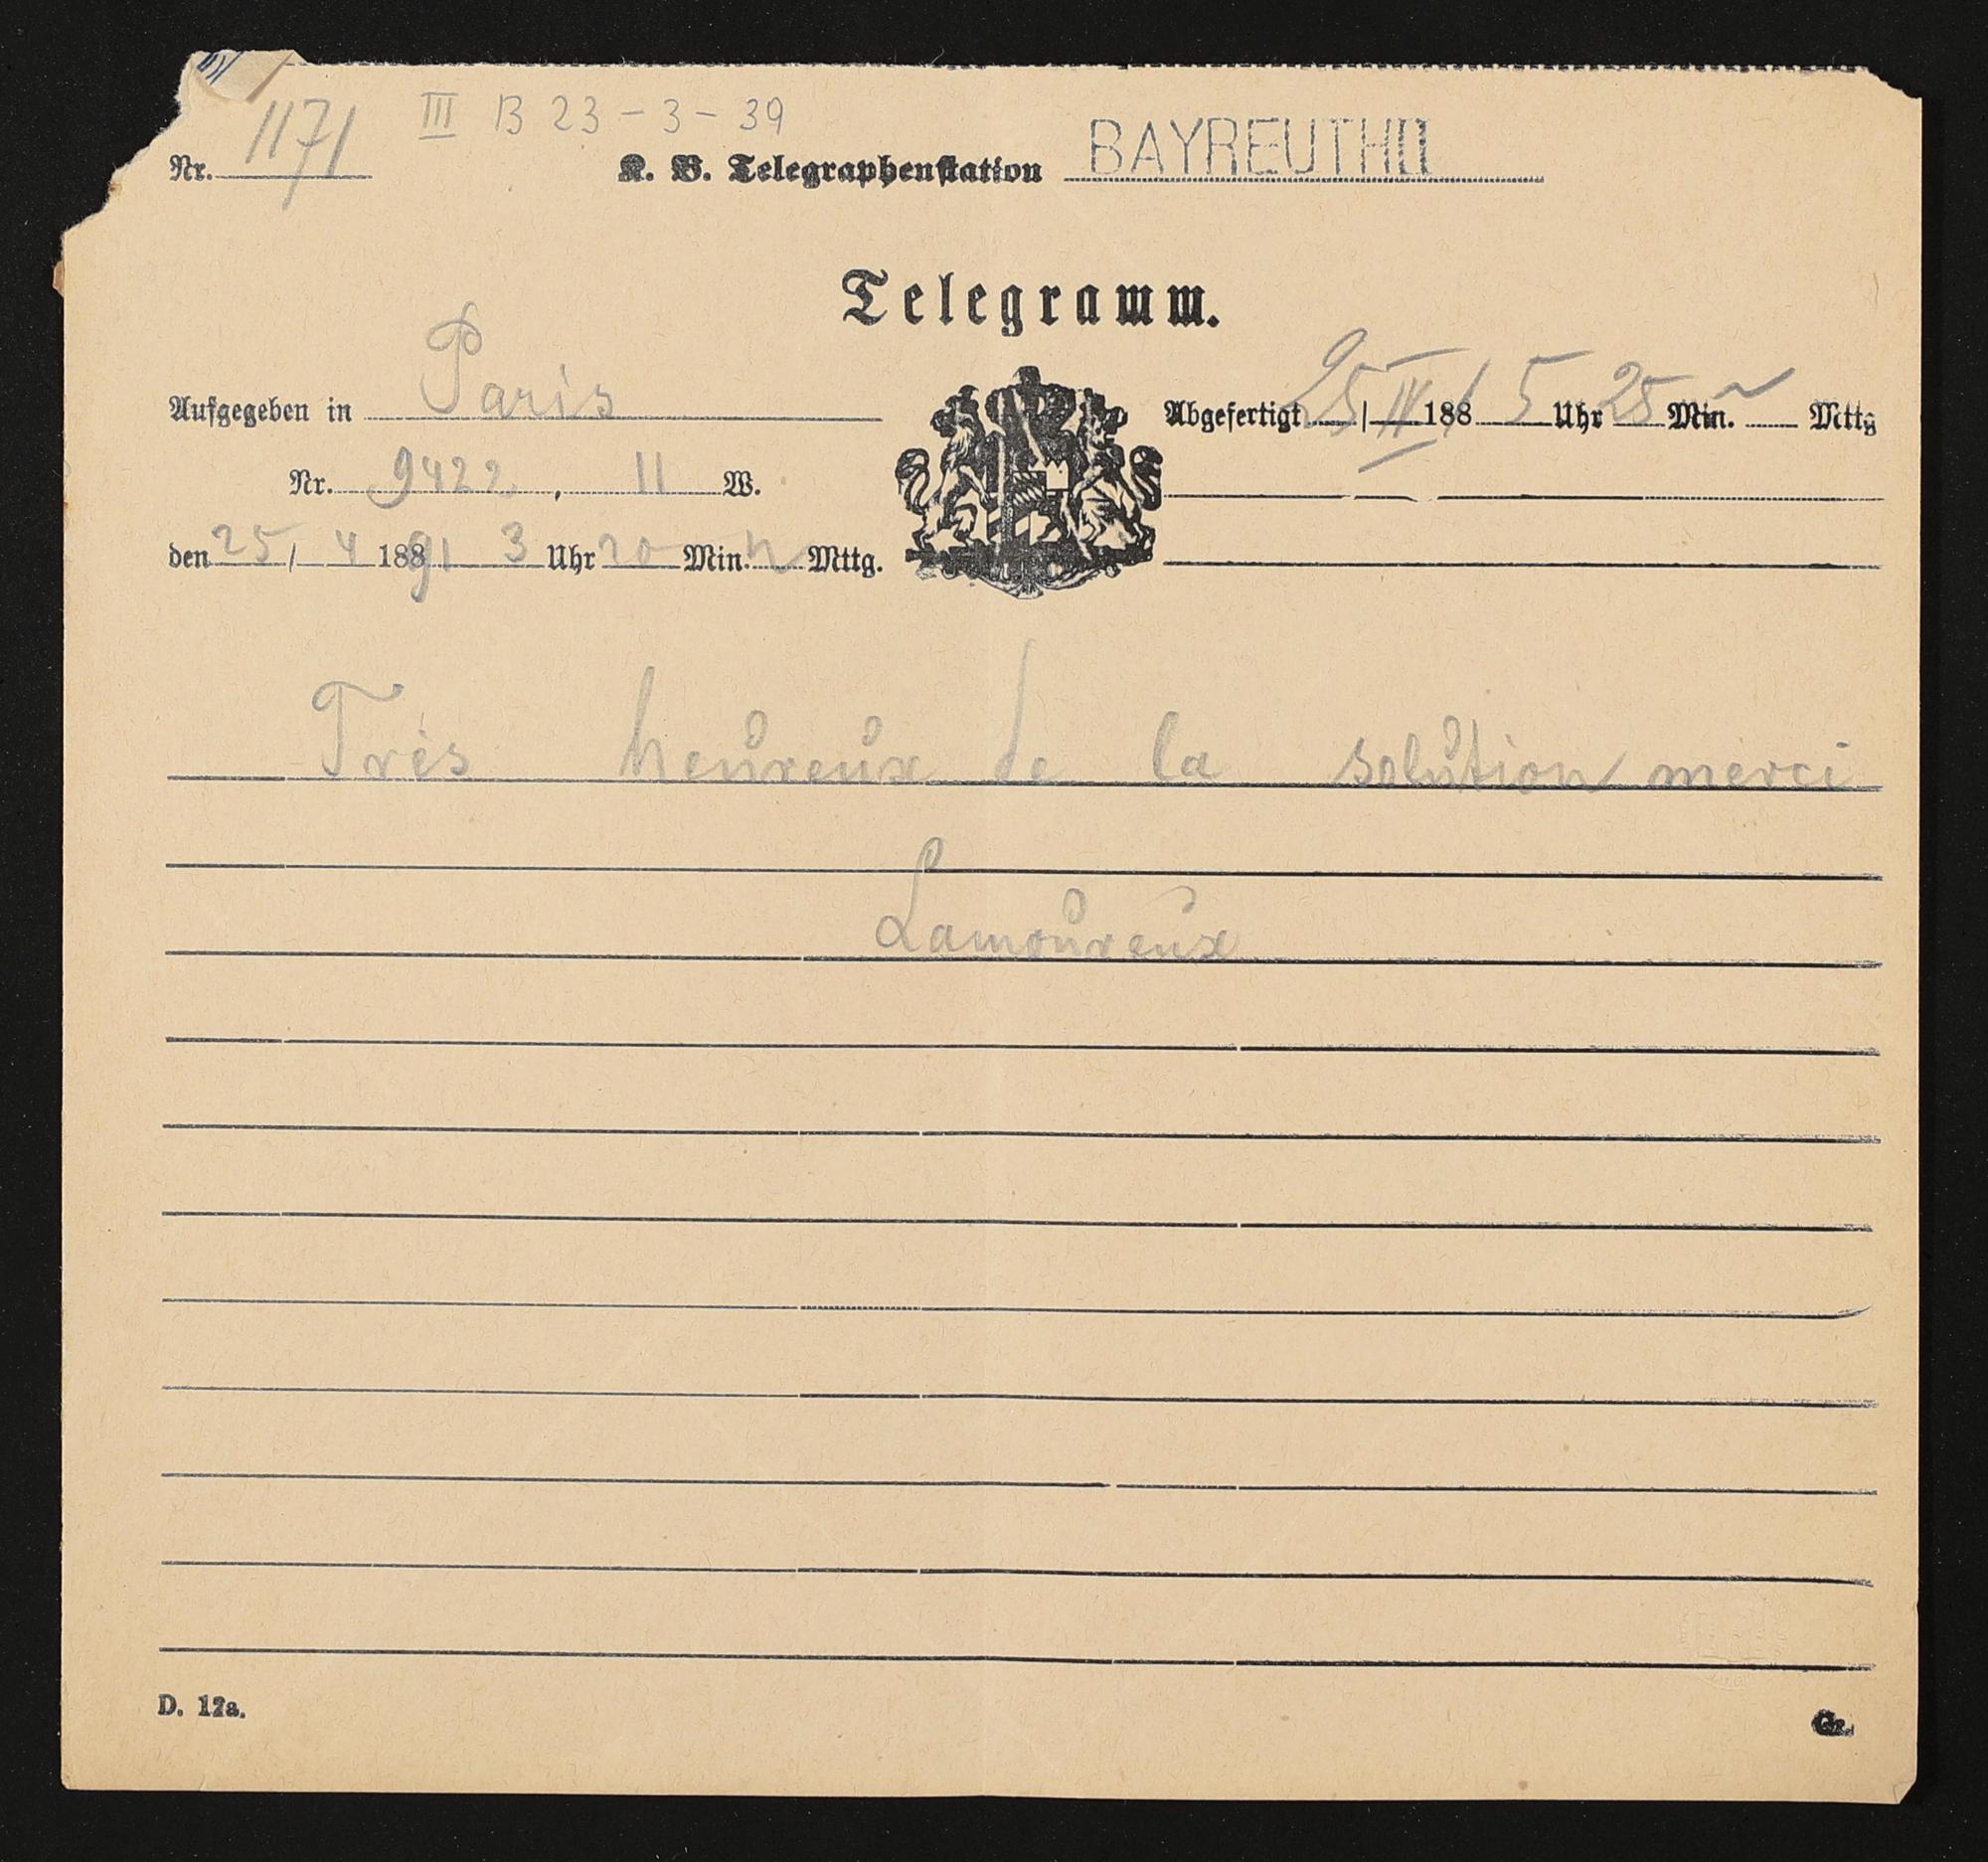 1171 III B 23-3-39
Nr. K. B. Telegraphenstation BAYREUTH II
Telegramm.
Aufgegeben in Paris
Abgefertigt 25/IV 188 5 Uhr 25 Min. Mttg
Nr. 9422, 11 W.
den 25/4 1891 3 Uhr 20 Min. N Mttg.
Très heureux de la solution merci
Lamoureux
D. 12a.
Gr.